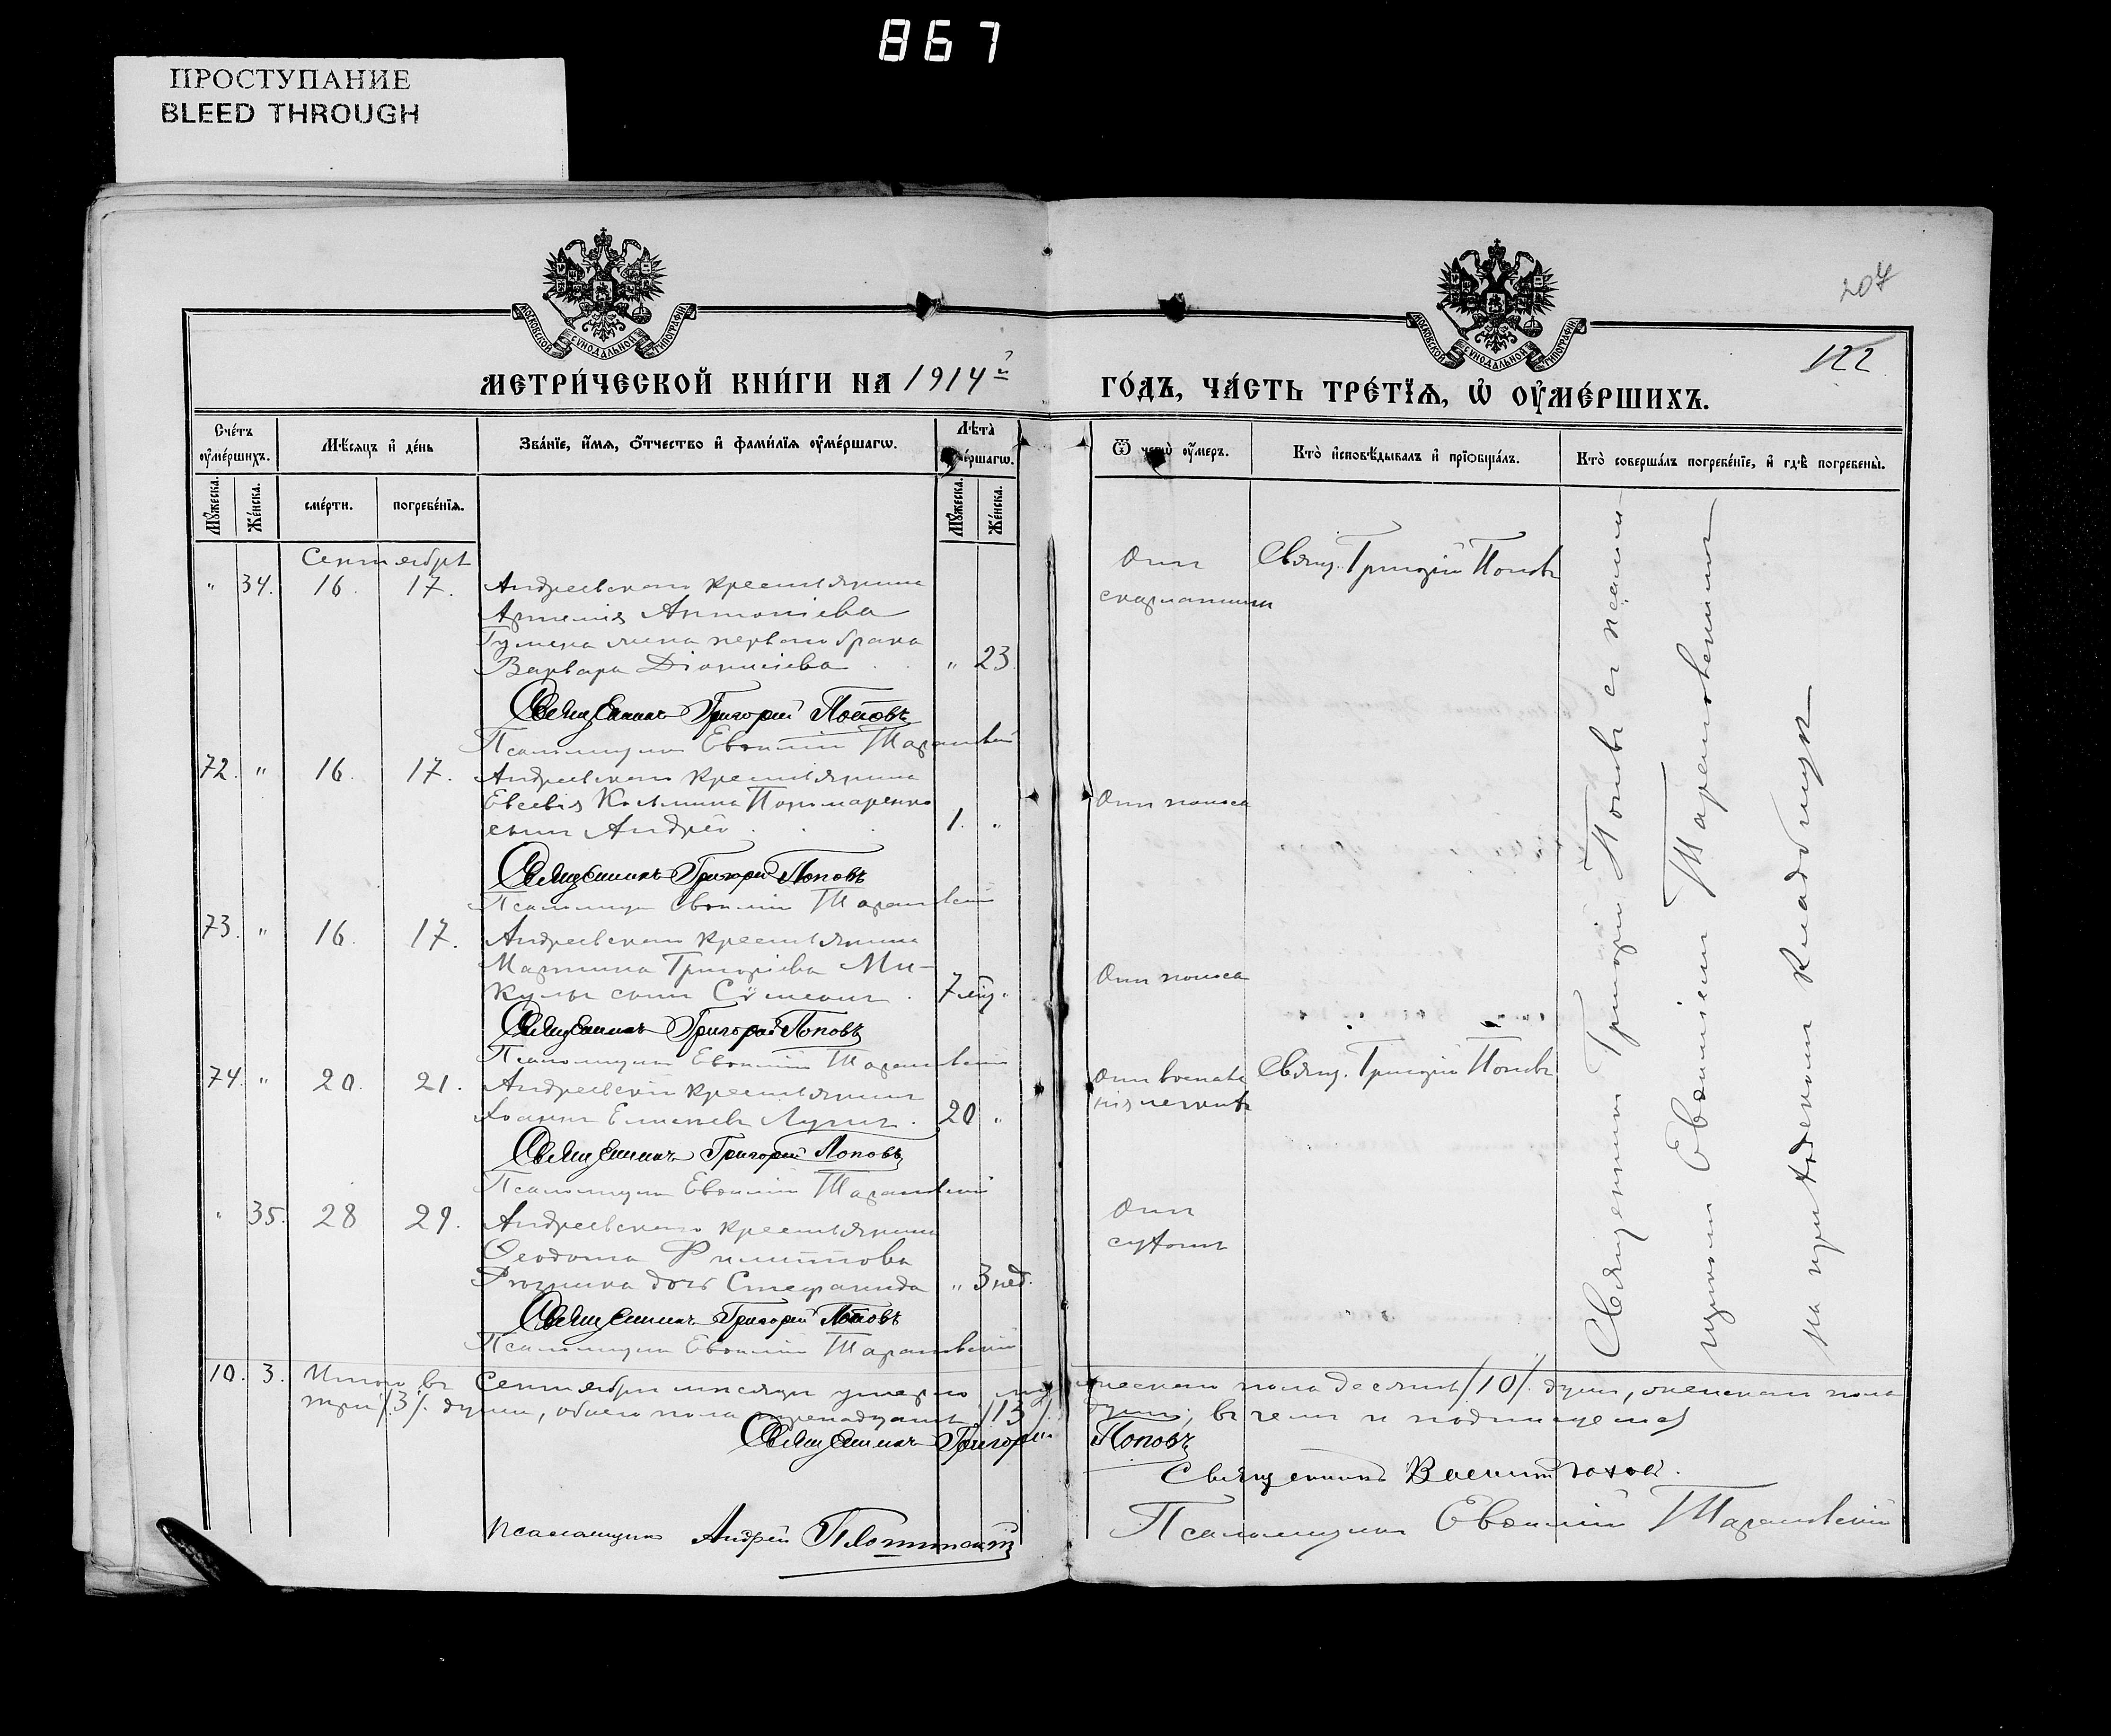 867
ПРОСТУПАНИЕ
BLEED THROUGH
204
122
МЕТРИЧЕСКОЙ КНИГИ НА 1914й
ГОДЪ, ЧАСТЬ ТРЕТІЯ, Ѡ ОУМЕРШИХЪ.
МОСКОВСКОЙ СѴНОДАЛЬНОЙ ТИПОГРАФІИ
МОСКОВСКОЙ СѴНОДАЛЬНОЙ ТИПОГРАФІИ
Счетъ оумершихъ.
Мѣсяцъ и день
Званіе, имя, отчество и фамилія оумершагѡ.
Лѣта
Ѿ чегѡ оумеръ.
Кто исповѣдывалъ и пріобщалъ.
Кто совершалъ погребеніе, и гдѣ погребены.
Мужеска.
Женска.
смерти.
погребенія.
Мужеска.
Женска.
Сентябрь
" 34. 16. 17. Андреевскаго крестьянина
Артемія Антоніева
жена перваго брака
Варвара Діонисіева " 23.
Отъ
скарлатины
Свящ. Григорій Поповъ
Священникъ Григорій Поповъ
Псаломщикъ Евѳимій Тарановскій
72. " 16. 17. Андреевскаго крестьянина
Евсевія Косьмина Пономаренко
сынъ Андрей 1. "
Отъ поноса
Священникъ Григорій Поповъ
Псаломщикъ Евѳимій Тарановскій
73. " 16. 17. Андреевскаго крестьянина
Мартина Григоріева Ми-
кулы сынъ Сѵмеонъ 7 мѣс. "
Отъ поноса
Священникъ Григорій Поповъ
Псаломщикъ Евѳимій Тарановскій
74. " 20. 21. Андреевскій крестьянинъ
Іоаннъ 20 "
Отъ воспале
нія легкихъ
Свящ. Григорій Поповъ
Священникъ Григорій Поповъ
Псаломщикъ Евѳимій Тарановскій
" 35. 28 29. Андреевскаго крестьянина
Ѳеодота Филиппова
дочь Стефанида " 3 нед.
Отъ
сухотъ
Священникъ Григорій Поповъ
Псаломщикъ Евѳимій Тарановскій
Священникъ Григорій Поповъ съ псалом-
щикомъ Евѳиміемъ Тарановскимъ
на приходскомъ кладбищѣ
10. 3. Итого въ Сентябрѣ мѣсяцѣ умерло мужескаго пола десять /10/ душъ, женскаго пола
три /3/ души, обоего пола тринадцать /13/ душъ, въ чемъ и подписуемся
Священникъ Григорій Поповъ
Священникъ
Псаломщикъ Андрей
Псаломщикъ Евѳимій Тарановскій